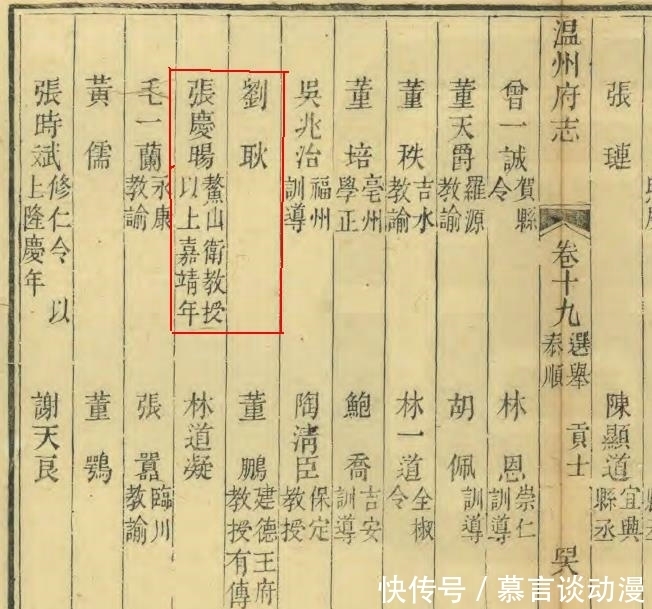 張璉 陳顯道 宜興縣丞
温州府志 卷十九 選舉 泰順 貢士
曾一誠 賀縣令 林恩 崇仁訓導
董天爵 羅源教諭 胡佩 訓導
董秩 吉水教諭 林一道 全椒令
董培 亳州學正 鮑喬 吉安訓導
吳兆治 福州訓導 陶淸臣 保定教授
劉耿 董鵬 建德王府教授有傳
張慶暘 鰲山衛教授以上嘉靖年 林道凝
毛一蘭 永康教諭 張囂 臨川教諭
黃儒 董鶚
張時斌 修仁令 以上隆慶年 謝天良
快传号 / 慕言谈动漫